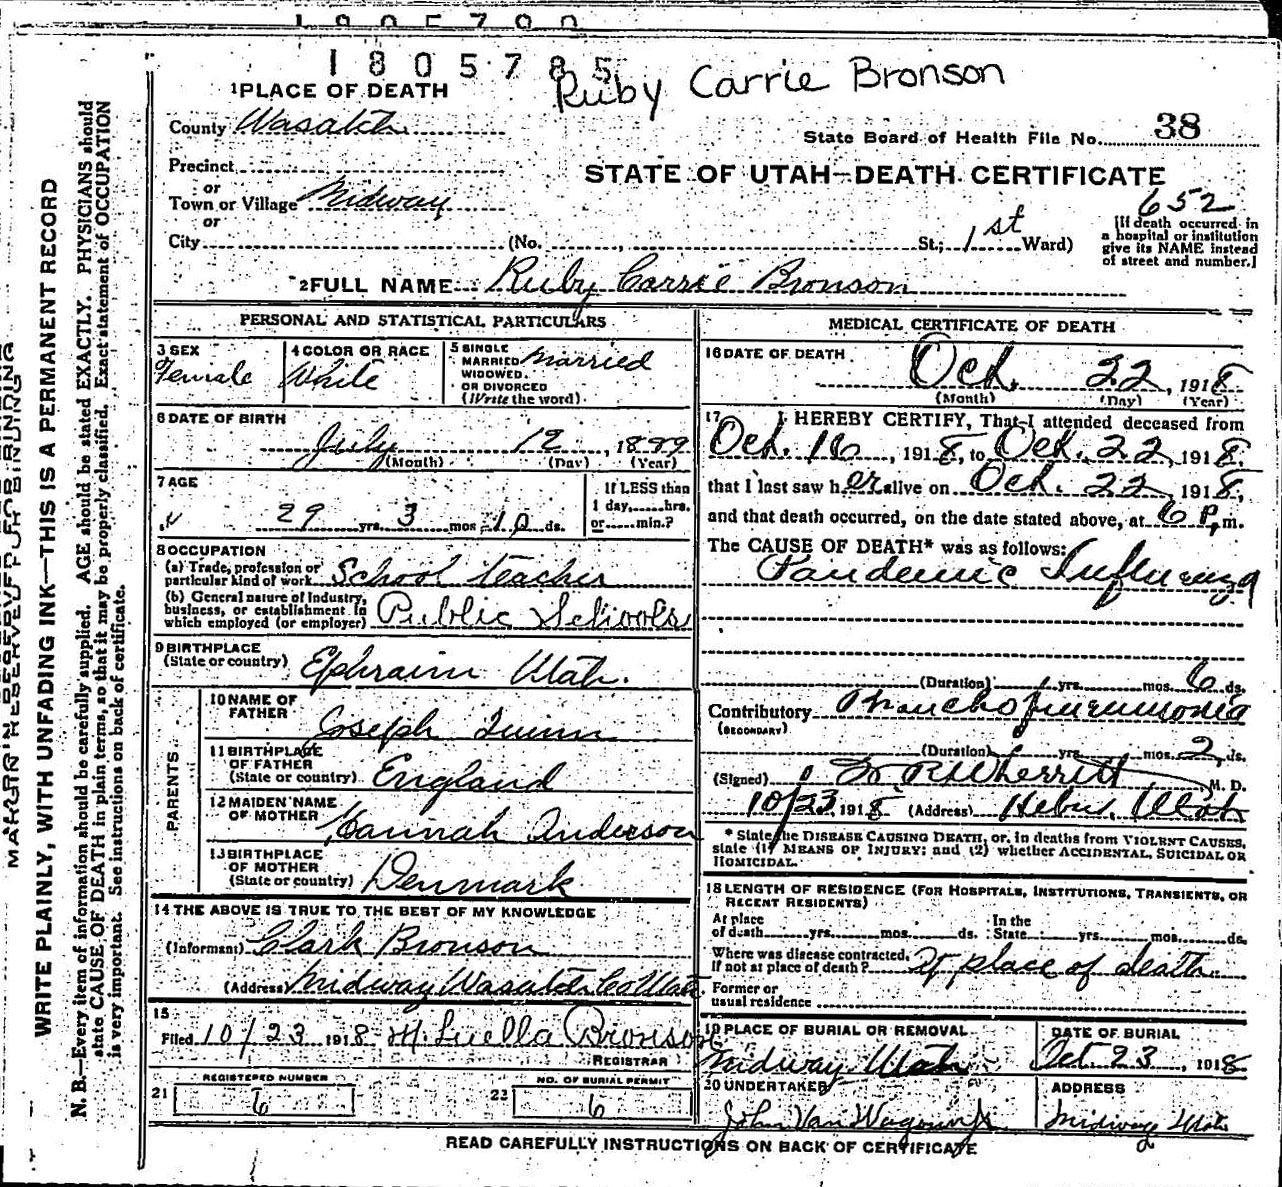 1805785
Ruby Carrie Bronson
1 PLACE OF DEATH
County Wasatch
State Board of Health File No. 38
Precinct
or
STATE OF UTAH—DEATH CERTIFICATE
Town or Village Midway
652
or
City (No. , St.; 1st Ward)
[If death occurred in
a hospital or institution
give its NAME instead
of street and number.]
2 FULL NAME Ruby Carrie Bronson
PERSONAL AND STATISTICAL PARTICULARS
3 SEX
Female
4 COLOR OR RACE
White
5 SINGLE
MARRIED Married
WIDOWED
OR DIVORCED
(Write the word)
6 DATE OF BIRTH
July 12, 1889
(Month) (Day) (Year)
7 AGE
29 yrs. 3 mos. 10 ds.
If LESS than
1 day,......hrs.
or......min.?
8 OCCUPATION
(a) Trade, profession or
particular kind of work School teacher
(b) General nature of Industry,
business, or establishment in
which employed (or employer) Public Schools
9 BIRTHPLACE
(State or country) Ephraim Utah.
PARENTS
10 NAME OF
FATHER
Joseph Quinn
11 BIRTHPLACE
OF FATHER
(State or country) England
12 MAIDEN NAME
OF MOTHER Hannah Anderson
13 BIRTHPLACE
OF MOTHER
(State or country) Denmark
14 THE ABOVE IS TRUE TO THE BEST OF MY KNOWLEDGE
(Informant) Clark Bronson
(Address) Midway Wasatch Co Utah.
15
Filed 10/23 1918 M. Luella Bronson
REGISTRAR
21 REGISTERED NUMBER
6
22 NO. OF BURIAL PERMIT
6
MEDICAL CERTIFICATE OF DEATH
16 DATE OF DEATH
Oct. 22, 1918
(Month) (Day) (Year)
17 I HEREBY CERTIFY, That I attended deceased from
Oct. 16, 1918, to Oct. 22, 1918,
that I last saw her alive on Oct. 22, 1918,
and that death occurred, on the date stated above, at 6 P.m.
The CAUSE OF DEATH* was as follows:
Pandemic Influenza
(Duration) yrs. mos. 6 ds.
Contributory Broncho pneumonia
(SECONDARY)
(Duration) yrs. mos. 2 ds.
(Signed) W R Wherritt M. D.
10/23, 1918 (Address) Heber, Utah
* State the DISEASE CAUSING DEATH, or, in deaths from VIOLENT CAUSES,
state (1) MEANS OF INJURY; and (2) whether ACCIDENTAL, SUICIDAL OR
HOMICIDAL.
18 LENGTH OF RESIDENCE (FOR HOSPITALS, INSTITUTIONS, TRANSIENTS, OR
RECENT RESIDENTS)
At place
of death......yrs......mos......ds.
In the
State......yrs......mos......ds.
Where was disease contracted,
If not at place of death? At place of death
Former or
usual residence
19 PLACE OF BURIAL OR REMOVAL
Midway Utah
DATE OF BURIAL
Oct. 23, 1918
20 UNDERTAKER
John Van Wagoner Jr
ADDRESS
Midway Utah
READ CAREFULLY INSTRUCTIONS ON BACK OF CERTIFICATE
MARGIN RESERVED FOR BINDING
WRITE PLAINLY, WITH UNFADING INK—THIS IS A PERMANENT RECORD
N. B.—Every item of information should be carefully supplied. AGE should be stated EXACTLY. PHYSICIANS should
state CAUSE OF DEATH in plain terms, so that it may be properly classified. Exact statement of OCCUPATION
is very important. See instructions on back of certificate.